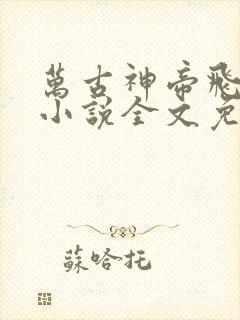 萬古神帝飛
小說全文免
蘇哈托